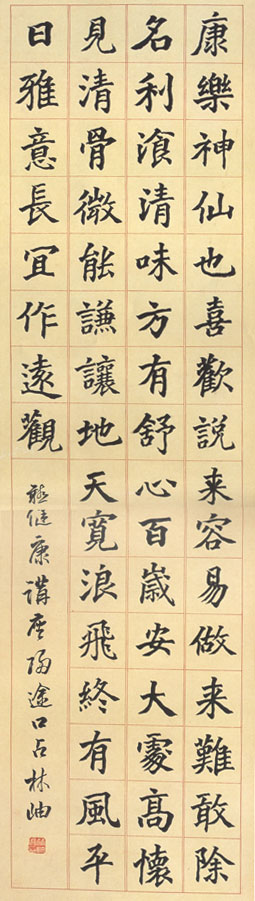 康樂神仙也喜歡説来容易做来難敢除
名利湌清味方有舒心百歲安大處高懷
見清骨微能謙讓地天寬浪飛終有風平
日雅意長宜作遠觀
聽健康講座歸途口占林岫